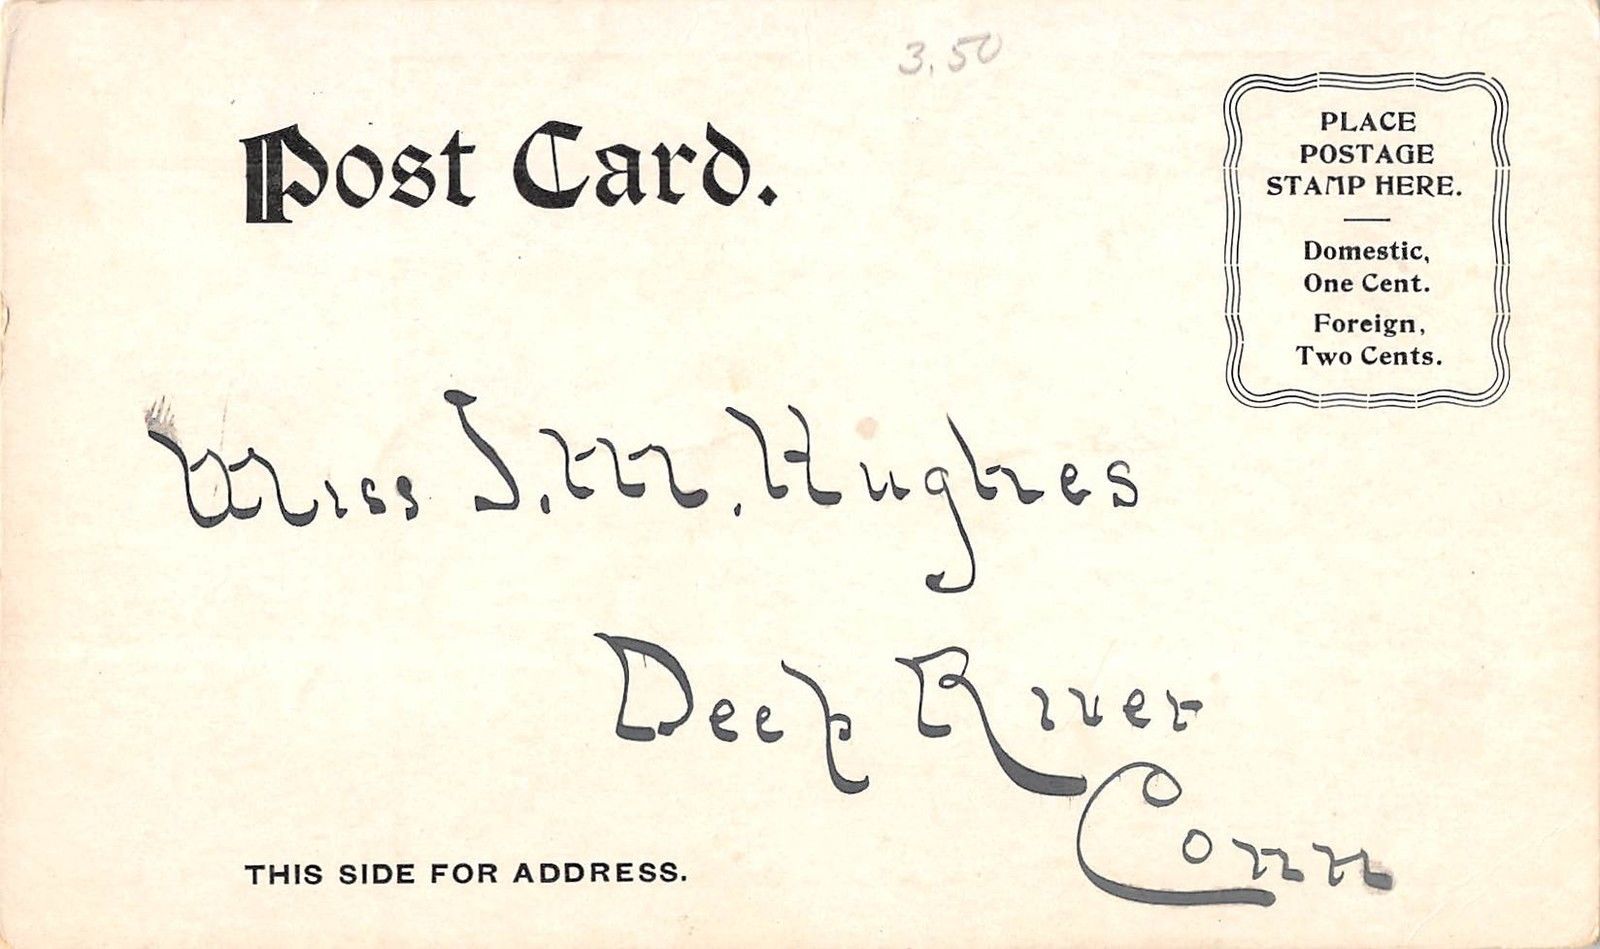 3.50
Post Card.
PLACE
POSTAGE
STAMP HERE.
Domestic,
One Cent.
Foreign,
Two Cents.
Miss J. M. Hughes
Deep River
Conn
THIS SIDE FOR ADDRESS.